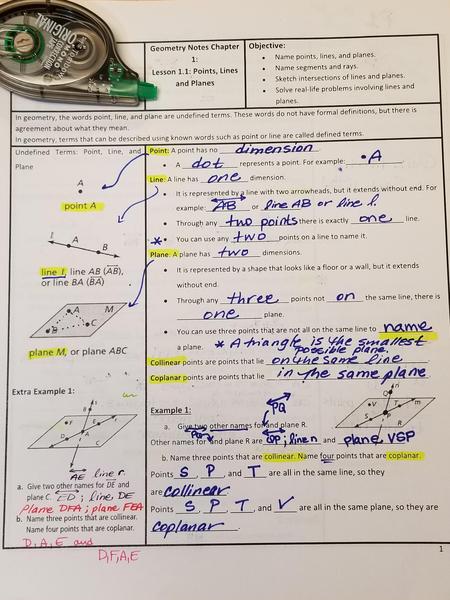 ORIGINAL
MONO
Geometry Notes Chapter
1:
Lesson 1.1: Points, Lines
and Planes
Objective:
• Name points, lines, and planes.
• Name segments and rays.
• Sketch intersections of lines and planes.
• Solve real-life problems involving lines and
planes.
In geometry, the words point, line, and plane are undefined terms. These words do not have formal definitions, but there is
agreement about what they mean.
In geometry, terms that can be described using known words such as point or line are called defined terms.
Undefined Terms: Point, Line, and
Plane
A
point A
l
A
B
line l, line AB (AB),
or line BA (BA)
A
M
B
C
plane M, or plane ABC
Point: A point has no dimension
• A dot represents a point. For example: •A
Line: A line has one dimension.
• It is represented by a line with two arrowheads, but it extends without end. For
example: AB or line AB or line l.
• Through any two points there is exactly one line.
* • You can use any two points on a line to name it.
Plane: A plane has two dimensions.
• It is represented by a shape that looks like a floor or a wall, but it extends
without end.
• Through any three points not on the same line, there is
one plane.
• You can use three points that are not all on the same line to name
a plane. * A triangle is the smallest
possible plane.
Collinear points are points that lie on the same line.
Coplanar points are points that lie in the same plane.
Extra Example 1:
F
E
D
A
C
AE line r.
a. Give two other names for DE and
plane C. ED; line DE
Plane DFA; plane FEA
b. Name three points that are collinear.
Name four points that are coplanar.
D, A, E and
D, F, A, E
Example 1:
PQ
a. Give two other names for PQ and plane R.
Other names for PQ and plane R are QP; line n and plane VSP
b. Name three points that are collinear. Name four points that are coplanar.
Q
n
V
T
m
S
P
R
Points S, P, and T are all in the same line, so they
are collinear.
Points S, P, T, and V are all in the same plane, so they are
coplanar.
1